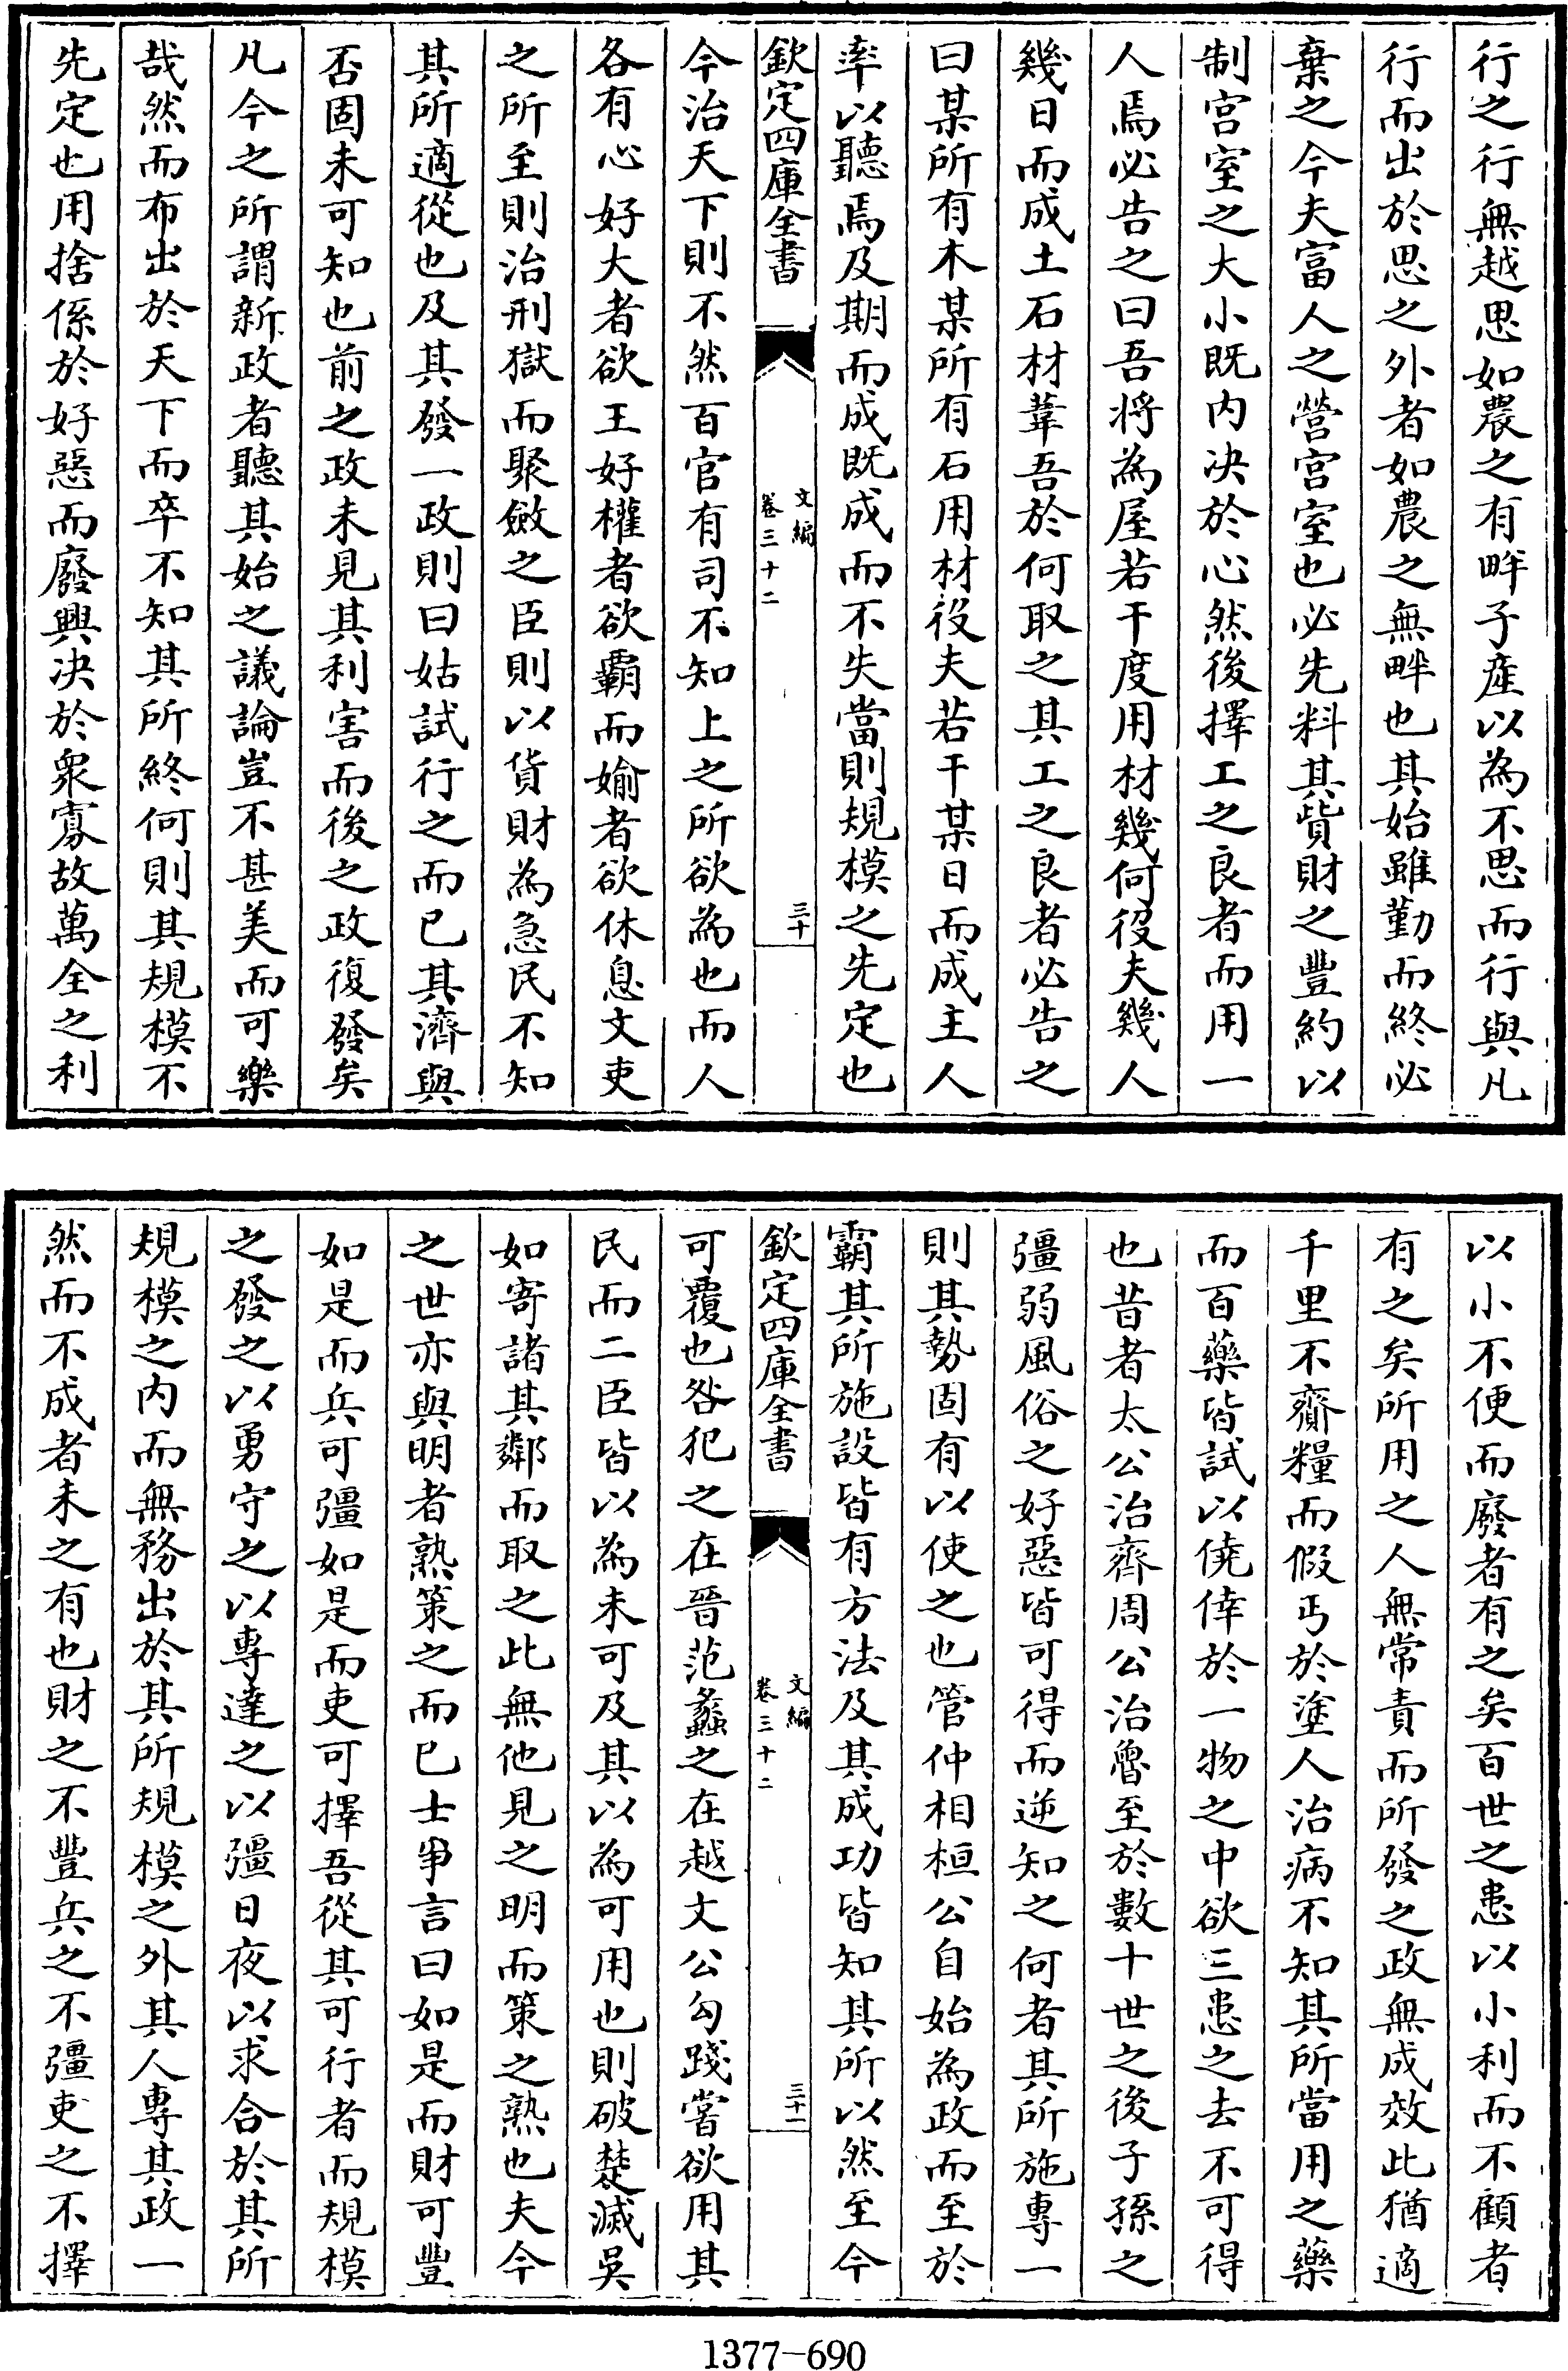 行之行無越思如農之有畔子産以為不思而行與凡
行而出於思之外者如農之無畔也其始雖勤而終必
棄之今夫富人之營宫室也必先料其貲財之豐約以
制宫室之大小既内决於心然後擇工之良者而用一
人焉必告之曰吾将為屋若干度用材幾何役夫幾人
幾日而成土石材葦吾於何取之其工之良者必告之
曰某所有木某所有石用材役夫若干某日而成主人
率以聽焉及期而成既成而不失當則規模之先定也
欽定四庫全書
文編
卷三十二
三十
今治天下則不然百官有司不知上之所欲為也而人
各有心好大者欲王好權者欲霸而媮者欲休息文吏
之所至則治刑獄而聚斂之臣則以貨財為急民不知
其所適從也及其發一政則曰姑試行之而已其濟與
否固未可知也前之政未見其利害而後之政復發矣
凡今之所謂新政者聽其始之議論豈不甚美而可樂
哉然而布出於天下而卒不知其所終何則其規模不
先定也用捨係於好惡而廢興决於衆寡故萬全之利
以小不便而廢者有之矣百世之患以小利而不顧者
有之矣所用之人無常責而所發之政無成效此猶適
千里不齎糧而假丐於塗人治病不知其所當用之藥
而百藥皆試以僥倖於一物之中欲三患之去不可得
也昔者太公治齊周公治魯至於數十世之後子孫之
彊弱風俗之好惡皆可得而逆知之何者其所施專一
則其勢固有以使之也管仲相桓公自始為政而至於
霸其所施設皆有方法及其成功皆知其所以然至今
欽定四庫全書
文編
卷三十二
三十一
可覆也咎犯之在晉范蠡之在越文公勾踐嘗欲用其
民而二臣皆以為未可及其以為可用也則破楚滅吳
如寄諸其鄰而取之此無他見之明而策之熟也夫今
之世亦與明者熟策之而已士爭言曰如是而財可豐
如是而兵可彊如是而吏可擇吾從其可行者而規模
之發之以勇守之以專達之以彊日夜以求合於其所
規模之内而無務出於其所規模之外其人專其政一
然而不成者未之有也財之不豐兵之不彊吏之不擇
1377-690